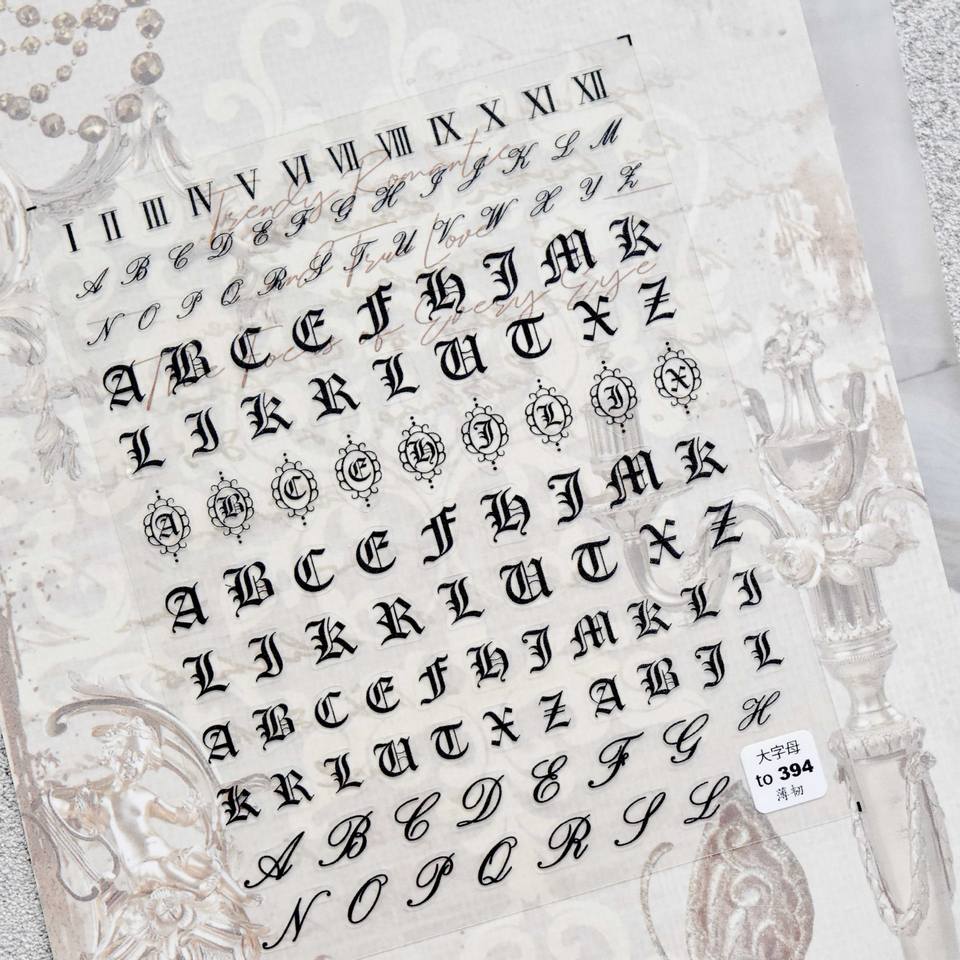 I II III IV V VI VII VIII IX X XI XII
A B C D E F G H I J K L M
N O P Q R S T U V W X Y Z
A B C E F H I M K
L I K R L U T X Z
A B C E H I L I X
A B C E F H I M K
L I K R L U T X Z
A B C E F H I M K L I
K R L U T X Z A B I L
A B C D E F G H
N O P Q R S L
Trendy Romantic
and True Love
The Focus of Every Eye
大字母
to 394
薄韧